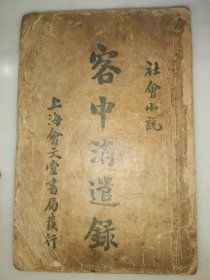 社會小説
客中消遣錄
上海會文堂書局發行